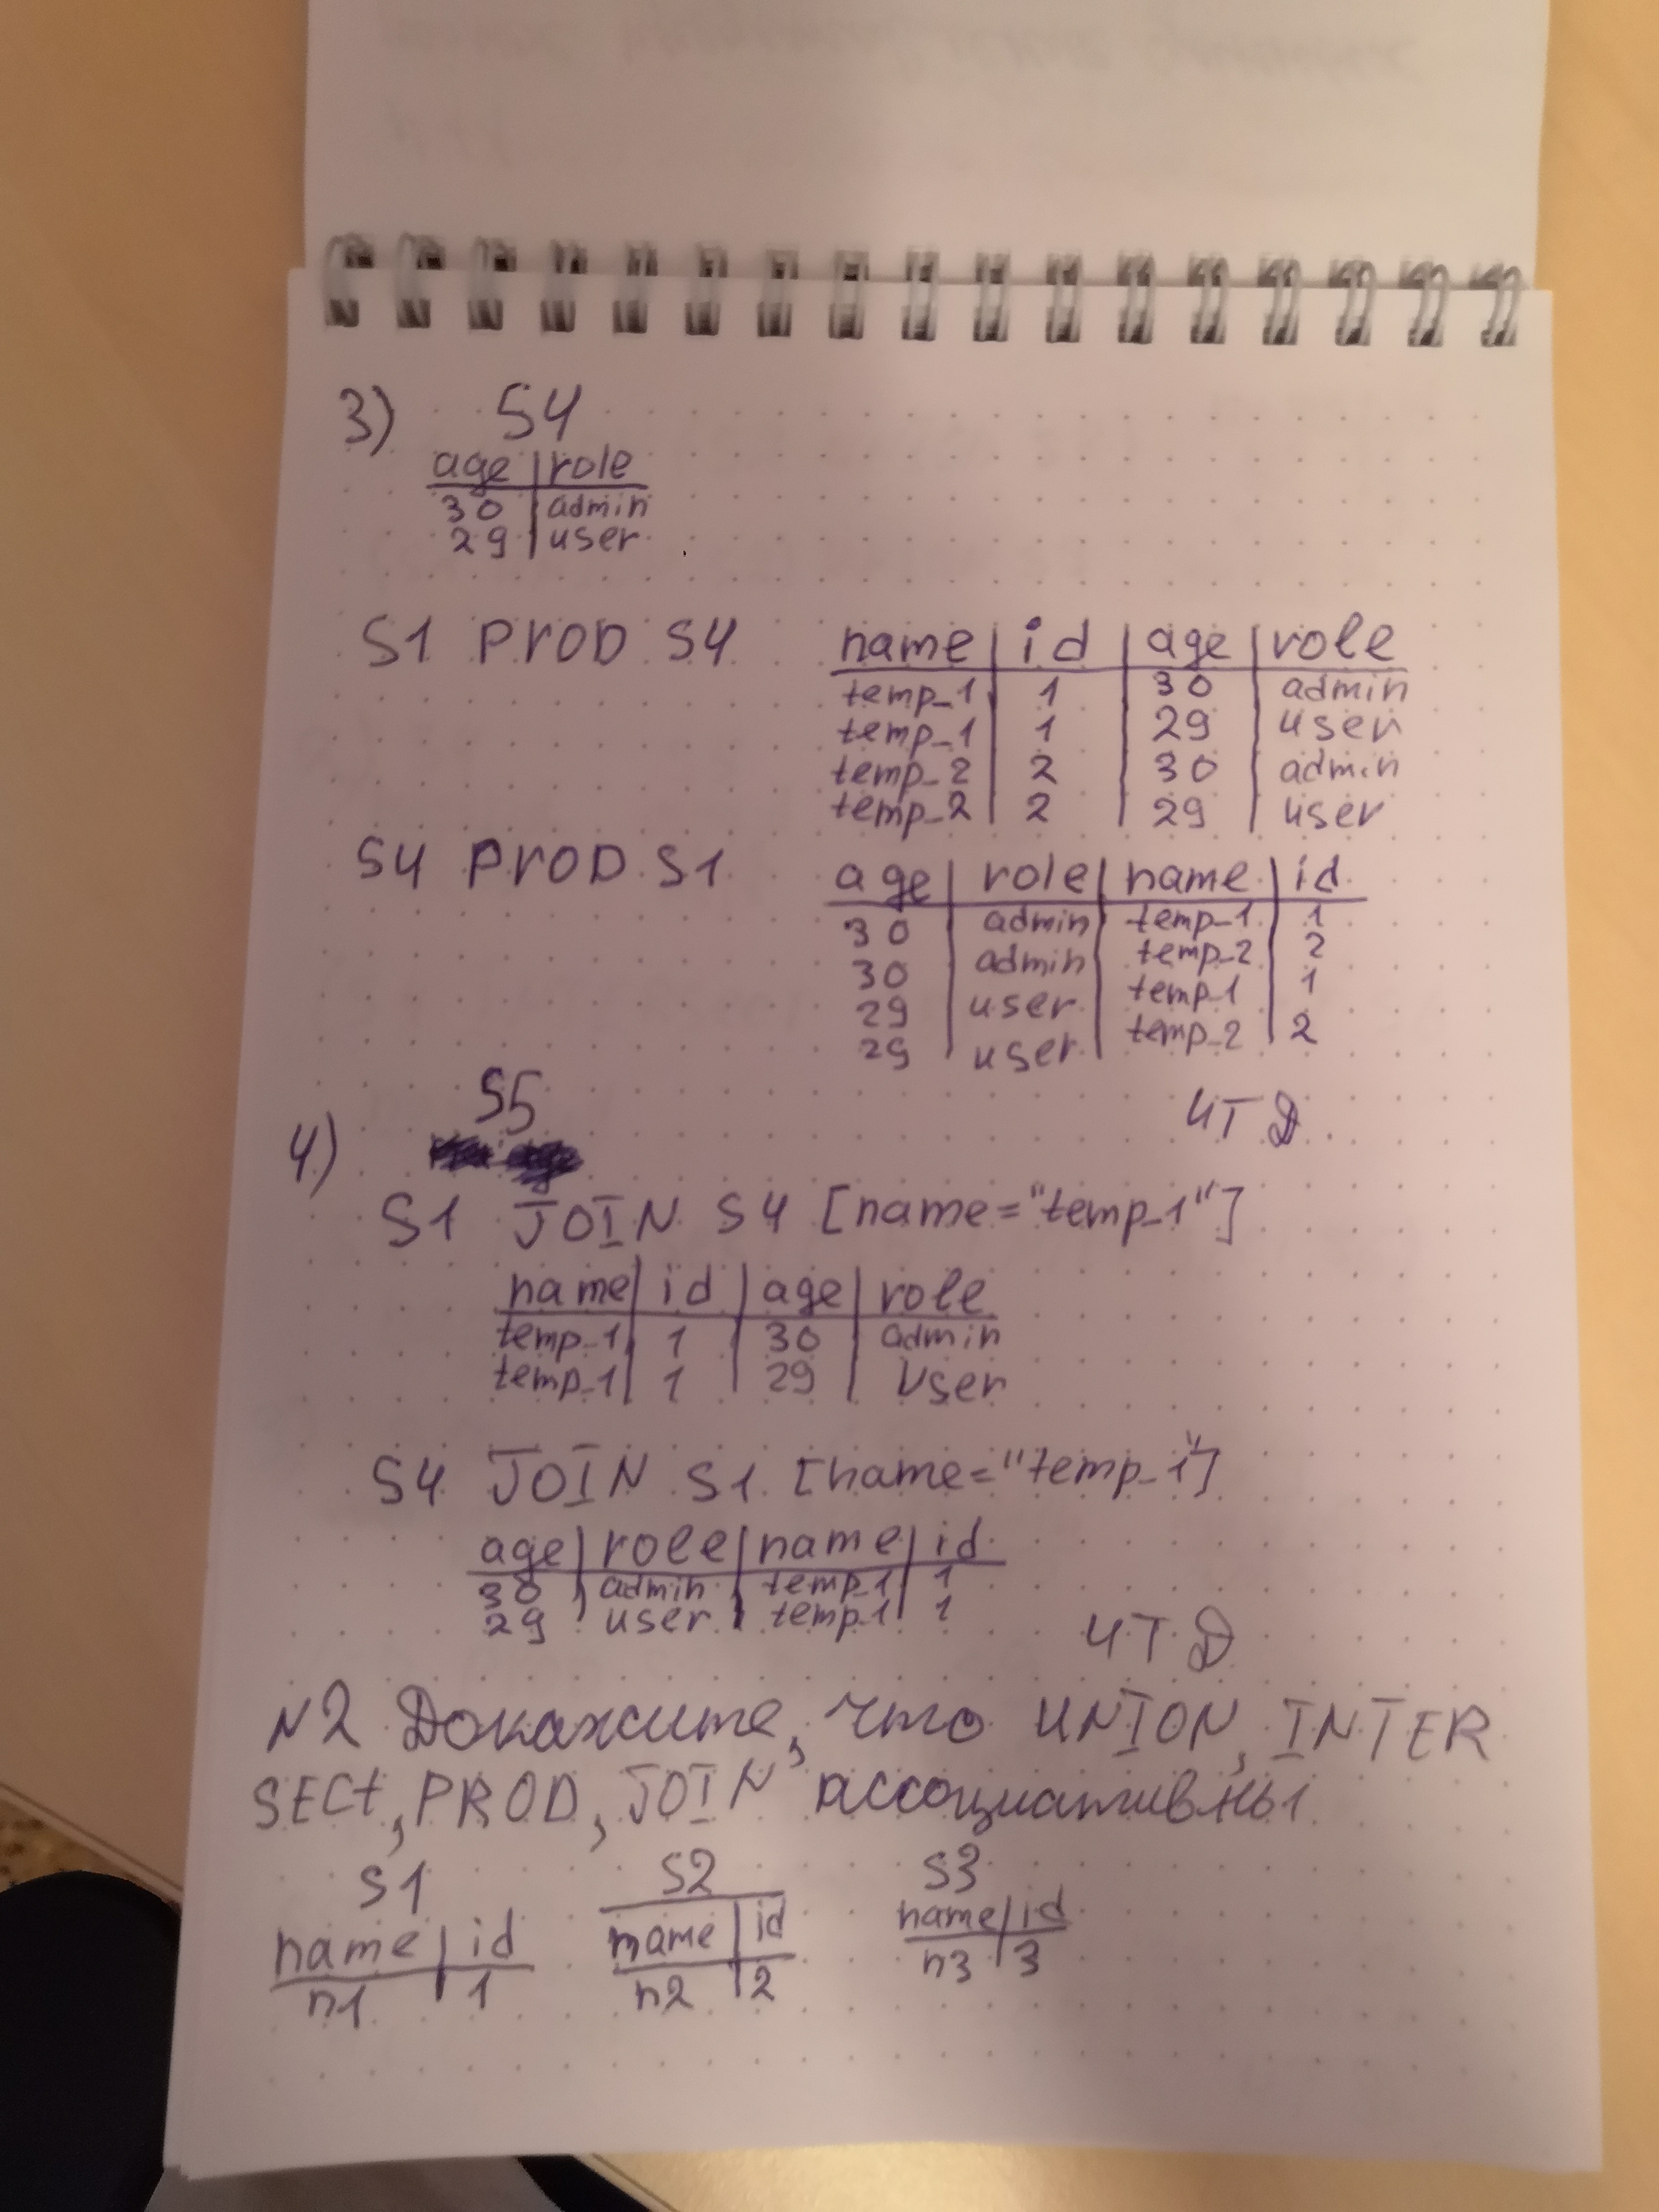 3) S4
age | role
30 | admin
29 | user
S1 PROD S4
name | id | age | role
temp_1 | 1 | 30 | admin
temp_1 | 1 | 29 | user
temp_2 | 2 | 30 | admin
temp_2 | 2 | 29 | user
S4 PROD S1
age | role | name | id
30 | admin | temp_1 | 1
30 | admin | temp_2 | 2
29 | user | temp_1 | 1
29 | user | temp_2 | 2
ЧТД
4) S5
S1 JOIN S4 [name="temp_1"]
name | id | age | role
temp_1 | 1 | 30 | admin
temp_1 | 1 | 29 | User
S4 JOIN S1 [name="temp_1"]
age | role | name | id
30 | admin | temp_1 | 1
29 | user | temp_1 | 1
ЧТД
N2 Докажите, что UNION, INTER
SECt, PROD, JOIN ассоциативны
S1 S2 S3
name | id name | id name | id
n1 | 1 n2 | 2 n3 | 3